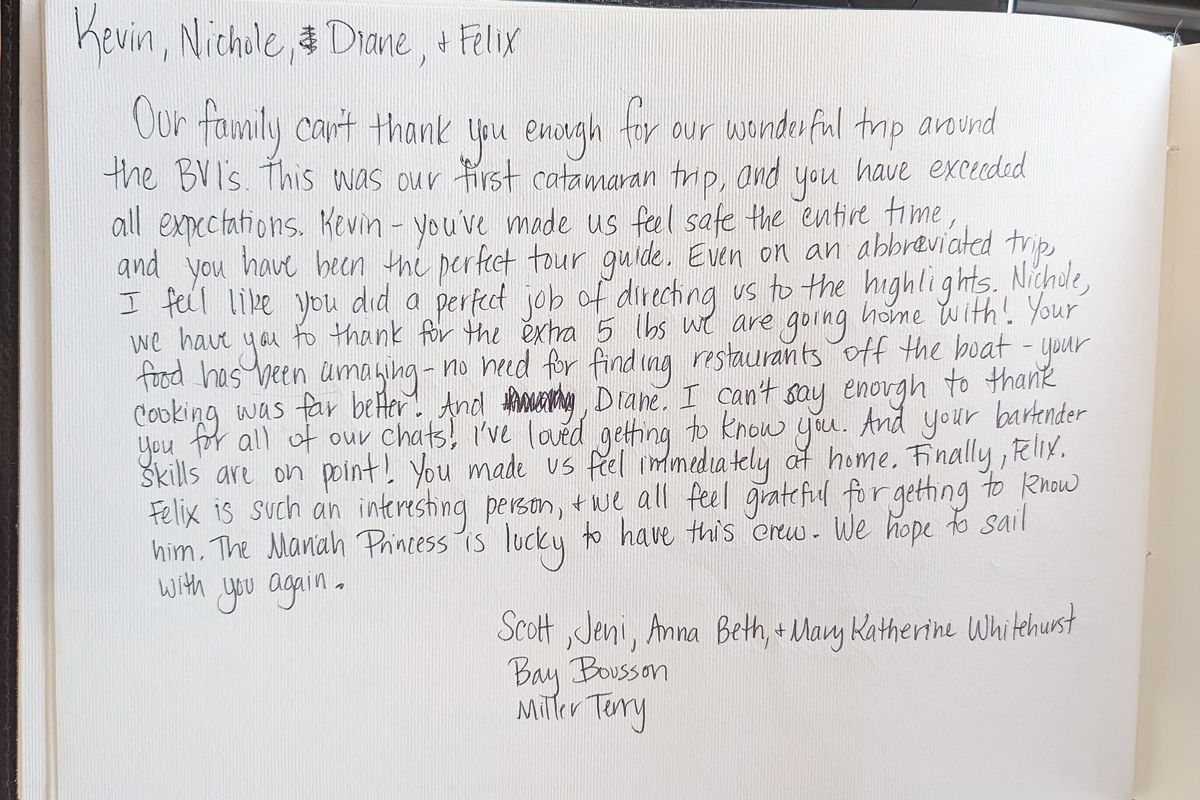 Kevin, Nichole, Diane, + Felix
Our family can't thank you enough for our wonderful trip around
the BVI's. This was our first catamaran trip, and you have exceeded
all expectations. Kevin - you've made us feel safe the entire time,
and you have been the perfect tour guide. Even on an abbreviated trip,
I feel like you did a perfect job of directing us to the highlights. Nichole,
we have you to thank for the extra 5 lbs we are going home with! Your
food has been amazing - no need for finding restaurants off the boat - your
cooking was far better! And , Diane. I can't say enough to thank
you for all of our chats! I've loved getting to know you. And your bartender
skills are on point! You made us feel immediately at home. Finally, Felix.
Felix is such an interesting person, + we all feel grateful for getting to know
him. The Mariah Princess is lucky to have this crew. We hope to sail
with you again.
Scott, Jeni, Anna Beth, + Mary Katherine Whitehurst
Bay Bousson
Miller Terry